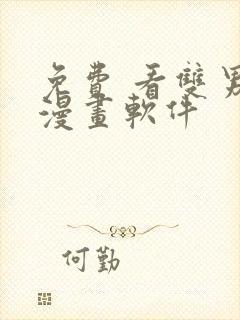 免費 看雙男
漫畫軟件
何勤